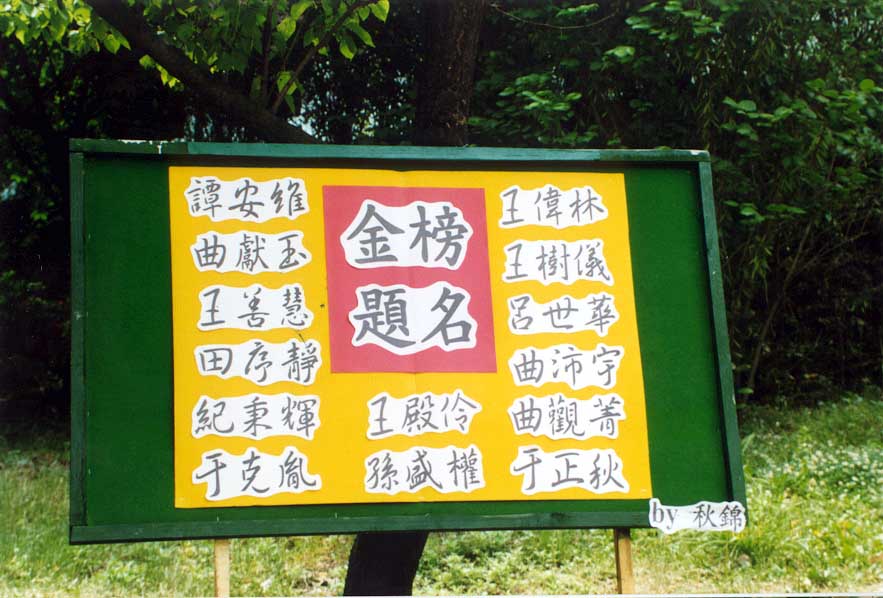 金榜
題名
譚安維
曲獻玉
王善慧
田序靜
紀秉輝
于克胤
王殿伶
孫盛權
王偉林
王樹儀
呂世華
曲沛宇
曲觀菁
于正秋
by 秋錦